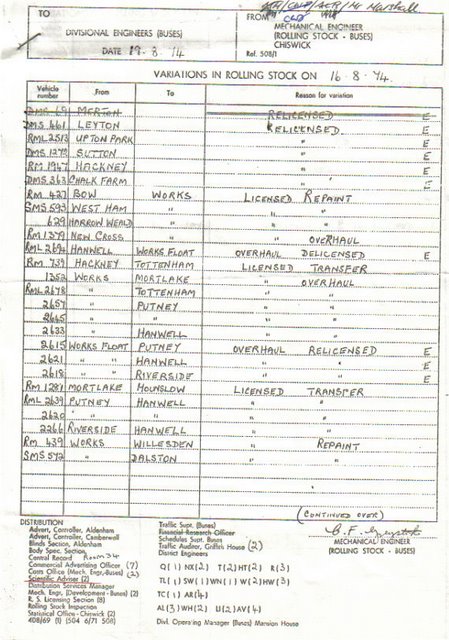 TO
DIVISIONAL ENGINEERS (BUSES)
DATE 19.8.74
FROM
MECHANICAL ENGINEER
(ROLLING STOCK - BUSES)
CHISWICK
Ref. 508/1
VARIATIONS IN ROLLING STOCK ON 16-8-74.
Vehicle number From To Reason for variation
DMS 69 MERTON RELICENSED E
DMS 461 LEYTON RELICENSED E
RML 2513 UPTON PARK " E
DMS 1270 SUTTON " E
RM 1947 HACKNEY " E
DMS 363 CHALK FARM " E
RM 427 BOW WORKS LICENSED REPAINT
SMS 593 WEST HAM " " "
629 HARROW WEALD " " "
RM 1379 NEW CROSS " " OVERHAUL
RML 2694 HANWELL WORKS FLOAT OVERHAUL DELICENSED E
RM 737 HACKNEY TOTTENHAM LICENSED TRANSFER
1352 WORKS MORTLAKE " OVERHAUL
RML 2678 " TOTTENHAM " "
2657 " PUTNEY " "
2645 " " " "
2633 " HANWELL " "
2615 WORKS FLOAT PUTNEY OVERHAUL RELICENSED E
2621 " " HANWELL " " E
2618 " " RIVERSIDE " " E
RM 1287 MORTLAKE HOUNSLOW LICENSED TRANSFER
RML 2639 PUTNEY HANWELL " "
2620 " " " "
2266 RIVERSIDE HANWELL " "
RM 439 WORKS WILLESDEN " REPAINT
SMS 592 " DALSTON " "
(CONTINUED OVER)
MECHANICAL ENGINEER
(ROLLING STOCK - BUSES)
DISTRIBUTION
Advert, Controller, Aldenham
Advert, Controller, Camberwell
Blinds Section, Aldenham
Body Spec. Section,
Central Record Room 34
Commercial Advertising Officer (7)
Costs Office (Mech. Engr.-Buses) (2)
Scientific Adviser (2)
Distribution Services Manager
Mech. Engr. (Development - Buses) (2)
R. S. Licensing Section (8)
Rolling Stock Inspection
Statistical Office - Chiswick (2)
408/69 (1) (504 6/71 508)
Traffic Supt. (Buses)
Financial Research Officer
Schedules Supt. Buses
Traffic Auditor, Griffith House (2)
District Engineers
Q(1) NX(2) T(2) HT(2) R(3)
TL(1) SW(1) WN(1) W(2) HW(3)
TC(1) AR(4)
AL(3) WH(2) U(2) AV(4)
Divl. Operating Manager (Buses) Mansion House